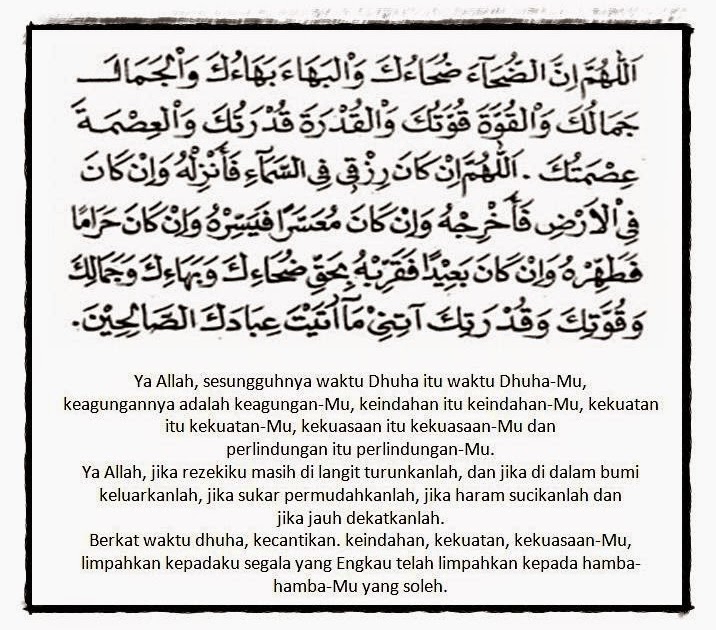 اَللّٰهُمَّ اِنَّ الضُّحَآءَ ضُحَاءُكَ وَالْبَهَاءَ بَهَاءُكَ وَالْجَمَالَ
جَمَالُكَ وَالْقُوَّةَ قُوَّتُكَ وَالْقُدْرَةَ قُدْرَتُكَ وَالْعِصْمَةَ
عِصْمَتُكَ. اَللّٰهُمَّ اِنْ كَانَ رِزْقِى فِى السَّمَآءِ فَأَنْزِلْهُ وَاِنْ كَانَ
فِى اْلاَرْضِ فَأَخْرِجْهُ وَاِنْ كَانَ مُعَسَّرًا فَيَسِّرْهُ وَاِنْ كَانَ حَرَامًا
فَطَهِّرْهُ وَاِنْ كَانَ بَعِيْدًا فَقَرِّبْهُ بِحَقِّ ضُحَاءِكَ وَبَهَاءِكَ وَجَمَالِكَ
وَقُوَّتِكَ وَقُدْرَتِكَ آتِنِيْ مَآاٰتَيْتَ عِبَادَكَ الصَّالِحِيْنَ.
Ya Allah, sesungguhnya waktu Dhuha itu waktu Dhuha-Mu,
keagungannya adalah keagungan-Mu, keindahan itu keindahan-Mu, kekuatan
itu kekuatan-Mu, kekuasaan itu kekuasaan-Mu dan
perlindungan itu perlindungan-Mu.
Ya Allah, jika rezekiku masih di langit turunkanlah, dan jika di dalam bumi
keluarkanlah, jika sukar permudahkanlah, jika haram sucikanlah dan
jika jauh dekatkanlah.
Berkat waktu dhuha, kecantikan. keindahan, kekuatan, kekuasaan-Mu,
limpahkan kepadaku segala yang Engkau telah limpahkan kepada hamba-
hamba-Mu yang soleh.